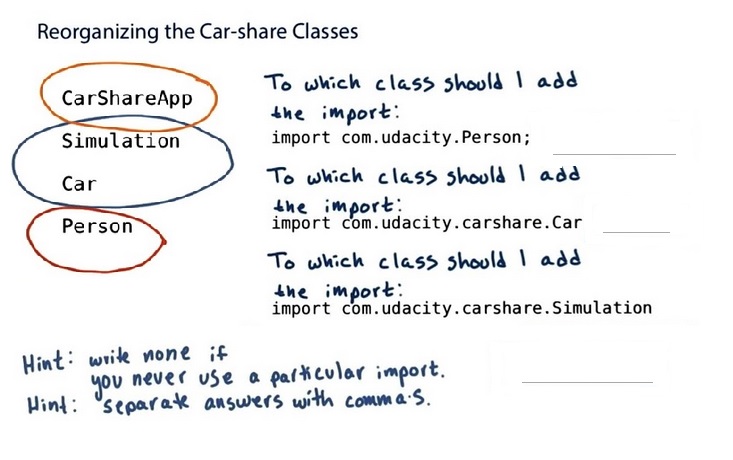 Reorganizing the Car-share Classes
CarShareApp
Simulation
Car
Person
To which class should I add
the import:
import com.udacity.Person;
To which class should I add
the import:
import com.udacity.carshare.Car
To which class should I add
the import:
import com.udacity.carshare.Simulation
Hint: write none if
you never use a particular import.
Hint: separate answers with commas.